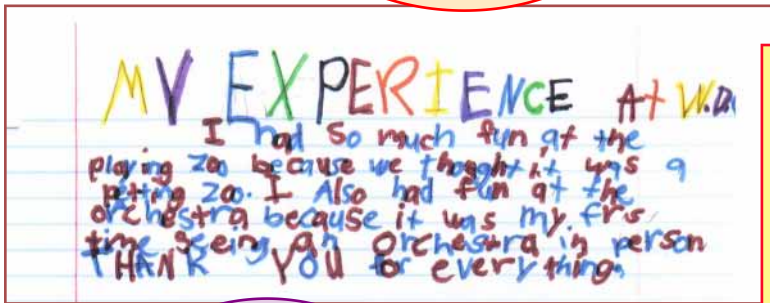 MY EXPERIENCE At W.D.
I had so much fun at the
playing zoo because we thought it was a
petting zoo. I Also had fun at the
orchestra because it was my. frs
time seeing an orchestra in person
THANK YOU for every thing.